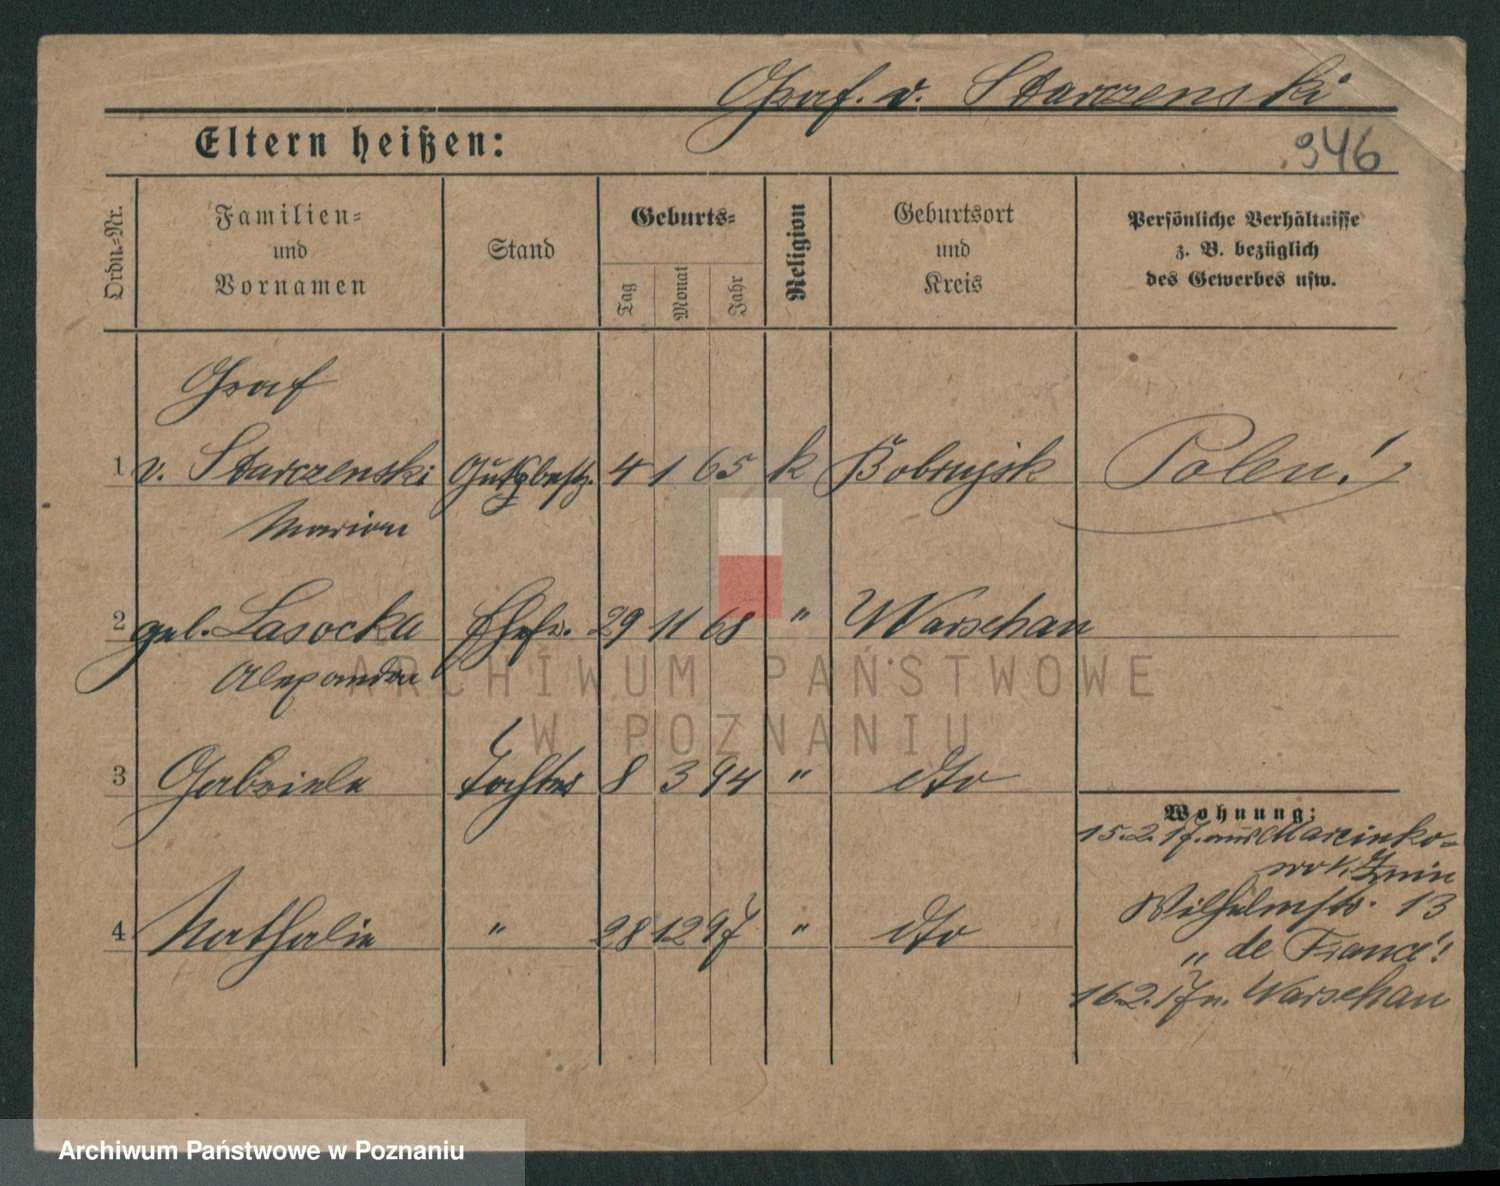 Graf. v. Starczenski
Eltern heißen:
946
Ordn.=Nr.
Familien=
und
Vornamen
Stand
Geburts=
Tag
Monat
Jahr
Religion
Geburtsort
und
Kreis
Persönliche Verhältnisse
z. B. bezüglich
des Gewerbes usw.
Graf
1 v. Starczenski Gutsbesitz. 4 1 65 k Bobrujsk Polen!
Marian
2 geb. Lasocka Ehefr. 29 11 68 " Warschau
Alexandra
3 Gabriele Tochter 8 3 94 " dto
Wohnung:
15.2.17. aus Marcinko=
wo k. Znin
Wilhelmstr. 13
4 Nathalie " 28 12 97 " dto
„ de France"!
16 2. 17 n. Warschau
ARCHIWUM PAŃSTWOWE
W POZNANIU
Archiwum Państwowe w Poznaniu